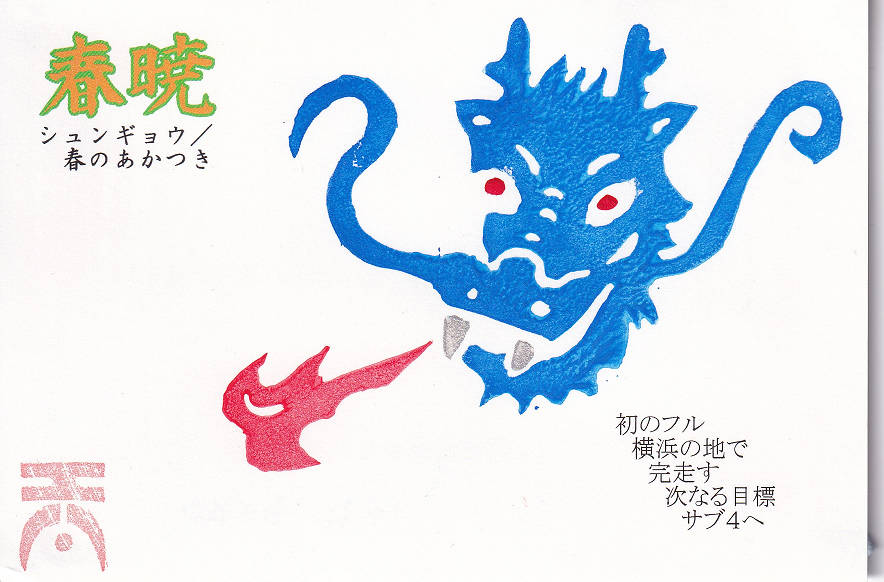 春暁
シュンギョウ／
春のあかつき
初のフル
横浜の地で
完走す
次なる目標
サブ４へ